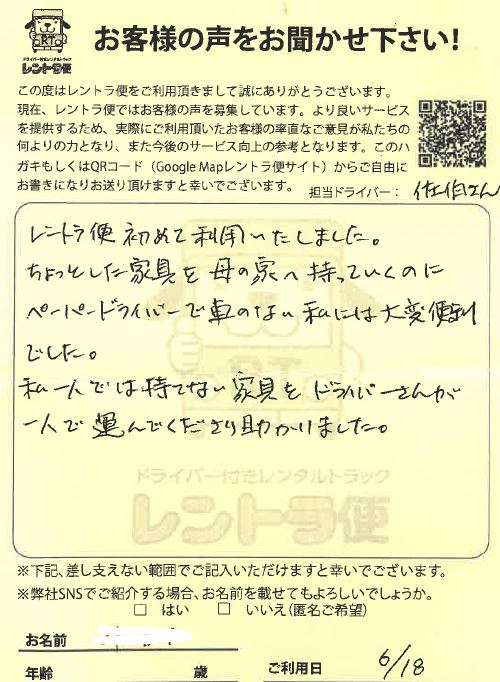 RT
ドライバー付きレンタルトラック
レントラ便
お客様の声をお聞かせ下さい!
この度はレントラ便をご利用頂きまして誠にありがとうございます。
現在、レントラ便ではお客様の声を募集しています。より良いサービス
を提供するため、実際にご利用頂いたお客様の率直なご意見が私たちの
何よりの力となり、また今後のサービス向上の参考となります。このハ
ガキもしくはQRコード（Google Mapレントラ便サイト）からご自由に
お書きになりお送り頂けますと幸いでございます。
担当ドライバー： 佐伯さん
レントラ便 初めて利用いたしました。
ちょっとした家具を母の家へ持っていくのに
ペーパードライバーで車のない私には大変便利
でした。
私一人では持てない家具をドライバーさんが
一人で運んでくださり助かりました。
RT
ドライバー付きレンタルトラック
レントラ便
※下記、差し支えない範囲でご記入いただけますと幸いでございます。
※弊社SNSでご紹介する場合、お名前を載せてもよろしいでしょうか。
□ はい □ いいえ(匿名ご希望)
お名前
年齢 歳 ご利用日 6/18